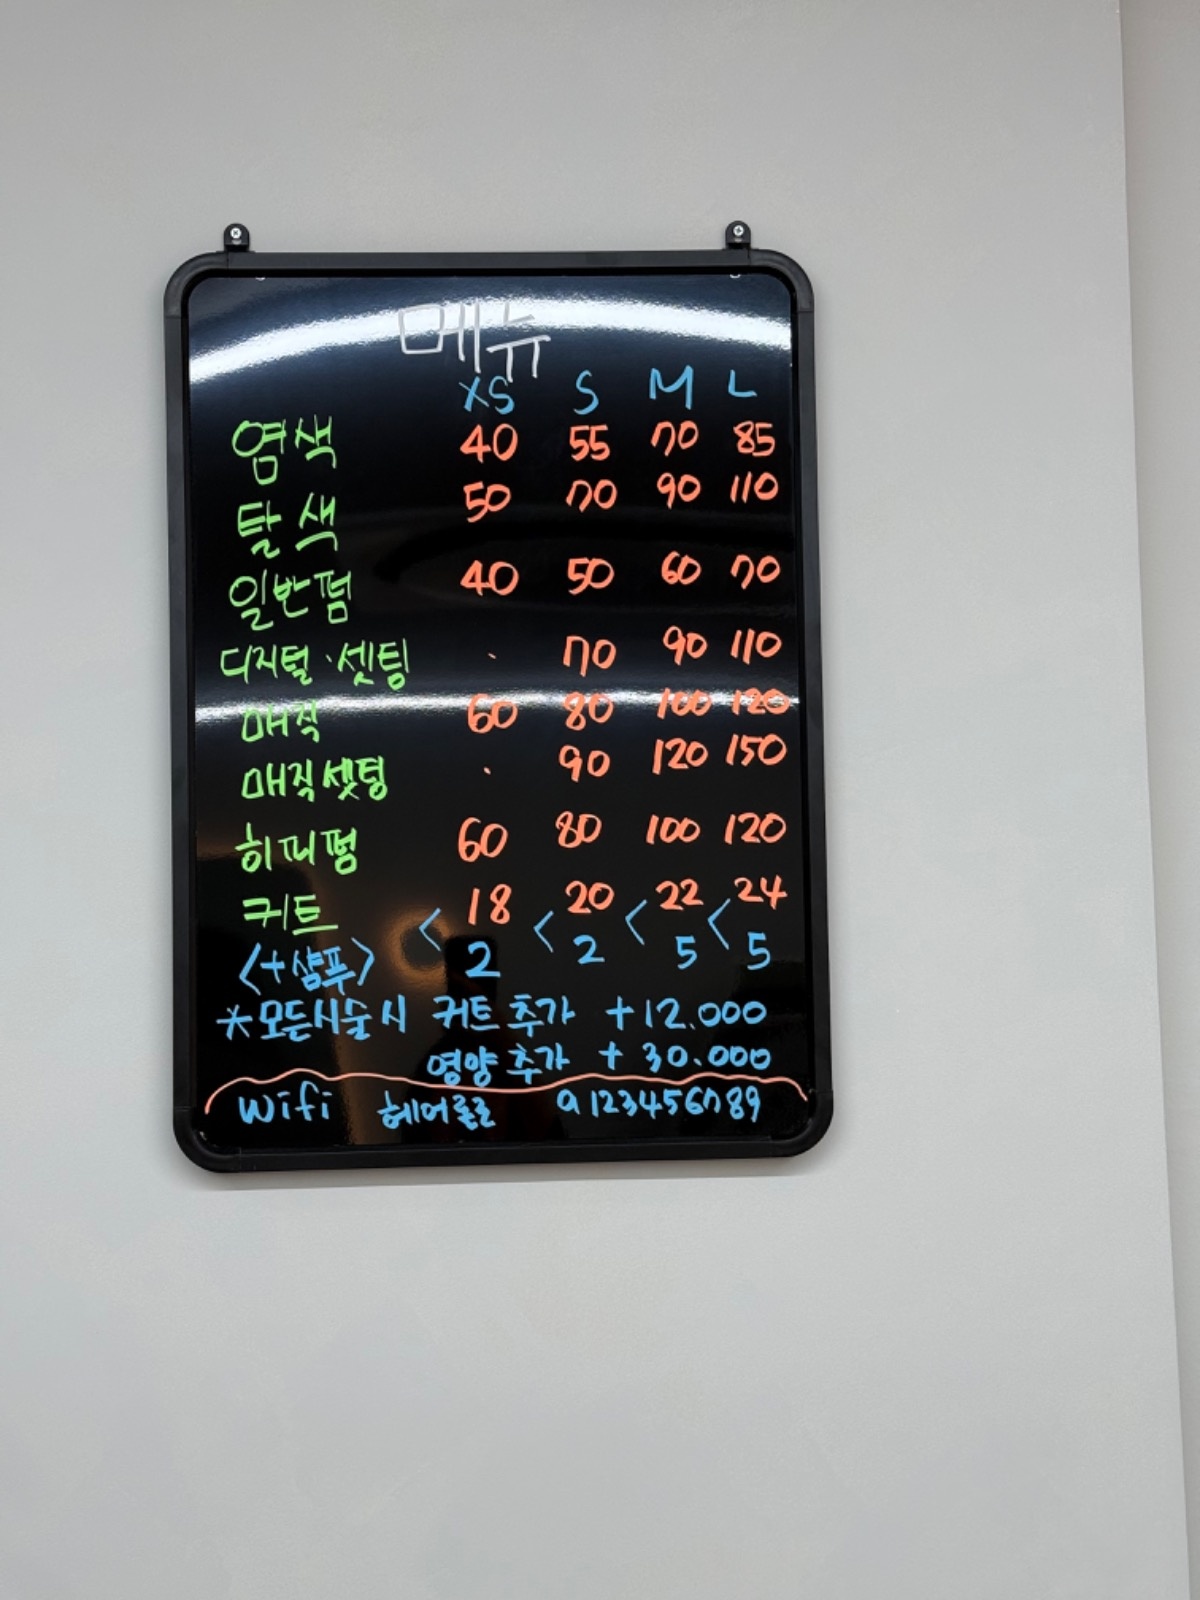 메뉴
XS S M L
염색 40 55 70 85
탈색 50 70 90 110
일반펌 40 50 60 70
디지털·셋팅 · 70 90 110
매직 60 80 100 120
매직셋팅 · 90 120 150
히피펌 60 80 100 120
커트 18 20 22 24
<+샴푸> < 2 < 2 < 5 < 5
*모든시술시 커트 추가 +12.000
영양 추가 + 30.000
Wifi 헤어룰루 a123456789